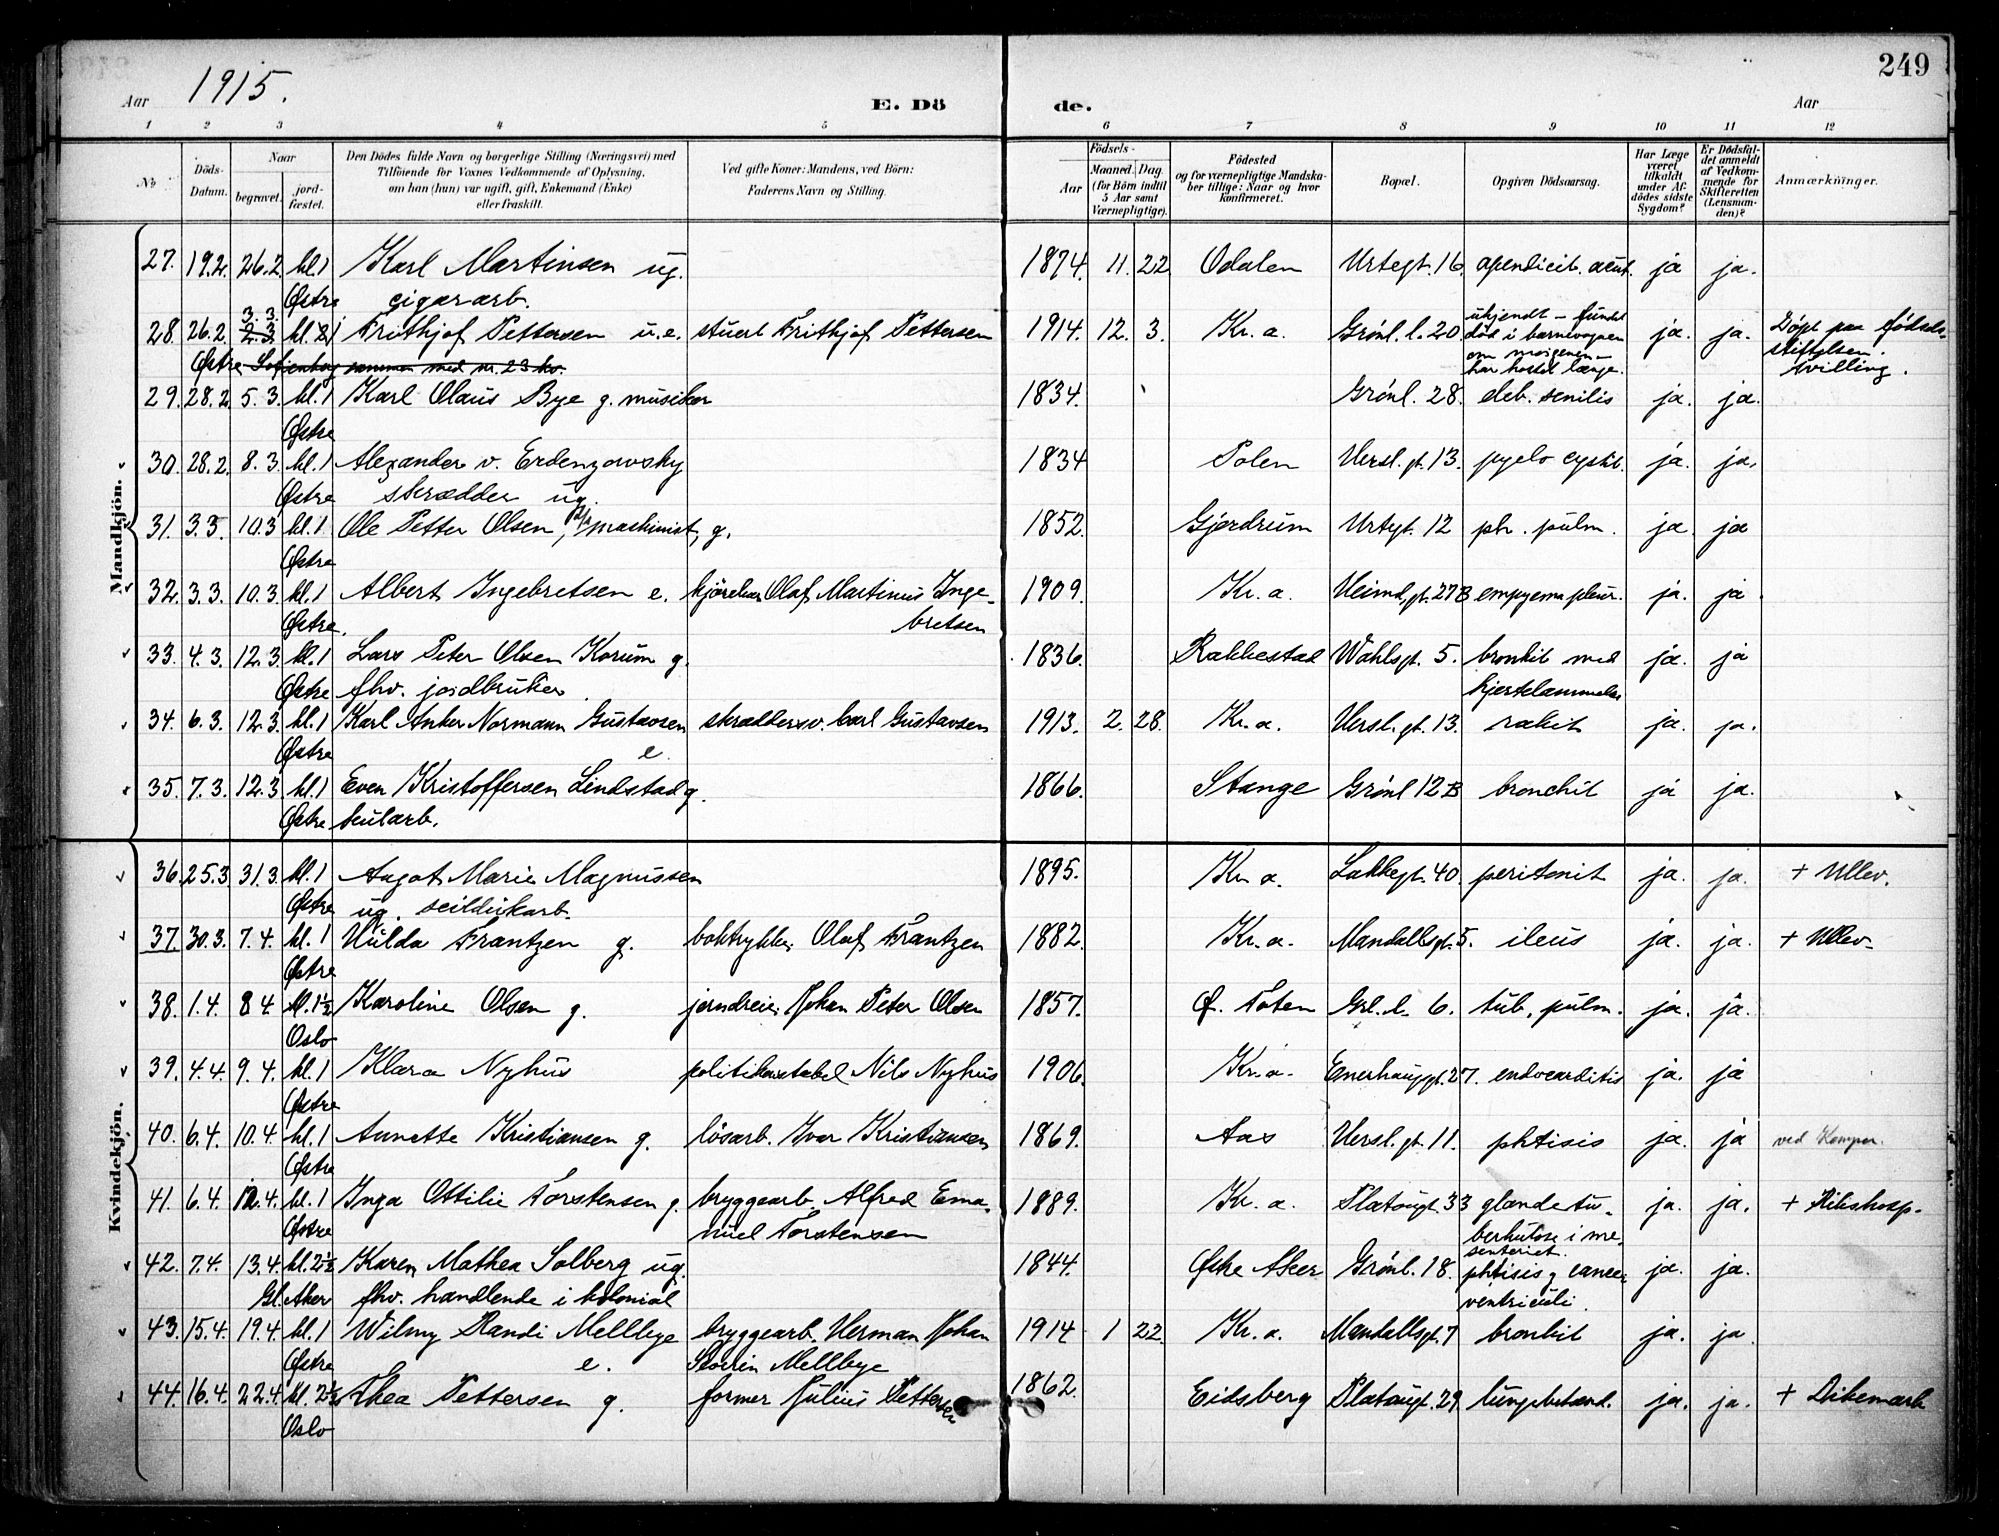 249
Aar 1915. E. Dö de. Aar
1 2 3 4 5 6 7 8 9 10 11 12
No
Döds-Datum.
Naar
begravet.
jord-fæstet.
Den Dödes fulde Navn og borgerlige Stilling (Næringsvei) med
Tilföiende for Voxnes Vedkommende af Oplysning,
om han (hun) var ugift, gift, Enkemand (Enke)
eller fraskilt.
Ved gifte Koner: Mandens, ved Börn:
Faderens Navn og Stilling.
Födsels-
Aar
Maaned. Dag.
(for Börn indtil
5 Aar samt
Værnepligtige).
Födested
og for værnepligtige Mandska-
ber tillige: Naar og hvor
konfirmeret.
Bopæl.
Opgiven Dödsaarsag.
Har Læge
været
tilkaldt
under Af-
dödes sidste
Sygdom?
Er Dödsfal-
det anmeldt
af Vedkom-
mende for
Skifteretten
(Lensman-
den)?
Anmærkninger.
Mandkjön.
27. 19.2. 26.2. kl.1 Karl Martinsen ug. 1874. 11. 22 Odalen Urtegt. 16. apendicit. acut. ja ja.
Østre cigararb.
3.3.
28. 26.2. 2.3. kl. 1 Frithjof Pettersen u.e. stuert Frithjof Pettersen 1914. 12. 3. Kr.a. Grønl. l. 20. ukjendt – fundet død i barnevognen om morgenen – har hostet længe. ja. ja. Døpt paa Fødsels-
stiftelsen.
tvilling.
Østre Sofienberg sammen med nr. 23 kv.
29. 28.2. 5.3. kl.1 Karl Olaus Bye g. musiker 1834. Grønl. 28. deb. senilis ja. ja.
Østre
30. 28.2. 8.3. kl.1 Alexander v. Erdenzowsky 1834 Polen Hersl. gt. 13. pyelo cystit. ja. ja.
Østre skrædder ug.
31. 3.3. 10.3 kl.1. Ole Petter Olsen, maskinist, g. 1852. Gjerdrum Urtegt. 12 pht. pulm. ja ja
Østre
32. 3.3. 10.3. kl.1 Albert Ingebretsen e. kjørekar Olaf Martinus Inge- 1909. Kr.a. Heimd. gt. 27B empyema pleur. ja. ja
Østre. bretsen
33. 4.3. 12.3. kl.1 Lars Peter Olsen Korum g. 1836. Rakkestad Wahlsgt. 5. bronkit med ja. ja
Østre fhv. jordbruker hjertelammelse
34. 6.3. 12.3. kl.1 Karl Anker Normann Gustavsen skræddersv. Carl Gustavsen 1913. 2. 28. Kr.a. Hersl. gt. 13. rakit ja. ja.
Østre e.
35. 7.3. 12.3. kl.1 Even Kristoffersen Lindstad g. 1866. Stange Grønl 12B bronchit ja ja.
Østre kularb.
Kvindekjön.
36. 25.3 31.3. kl.1 Aagot Marie Magnussen 1895. Kr.a. Lakkegt. 40. peritonit ja. ja. + Ullev.
Østre ug. seildukarb.
37. 30.3. 7.4. kl.1 Hilda Frantzen g. boktrykker Olaf Frantzen 1882. Kr.a. Mandallsgt. 5. ileus ja. ja. + Ullev.
Østre
38. 1.4. 8.4. kl. 1½ Karoline Olsen g. jerndreier Johan Peter Olsen 1857. Ø. Toten Grl. l. 6. tub. pulm. ja. ja.
Oslo
39. 4.4. 9.4. kl.1 Klara Nyhus politikonstabel Nils Nyhus 1906. Kr.a. Enerhauggt. 27. endocarditis ja. ja
Østre
40. 6.4. 10.4. kl.1 Annette Kristiansen g. løsarb. Ivar Kristiansen 1869. Aas Hersl. gt. 11. phtisis ja. ja
Østre
41. 6.4. 12.4. kl.1 Inga Ottilie Torstensen g. bryggearb. Alfred Ema- 1889. Kr.a. Platougt. 33 glandeltu- ja. ja. + Rikshosp.
Østre nuel Torstensen berkulose i me-
senteriet.
42. 7.4. 13.4. kl. 2½ Karen Mathea Solberg ug. 1844. Østre Aker Grønl. 18. phtisis, cancer ja. ja.
Gl. Aker fhv. handlende i kolonial ventriculi.
43. 15.4. 19.4. kl.1 Wilmy Randi Mellbye bryggearb. Herman Johan 1914 1 22. Kr.a. Mandallsgt. 7 bronkit ja. ja.
Østre e. Mellbye
44. 16.4. 22.4. kl. 2½ Thea Pettersen g. former Julius Pettersen 1862. Eidsberg Platougt. 29. lungebetænd. ja. ja. + Dikemark
Oslo